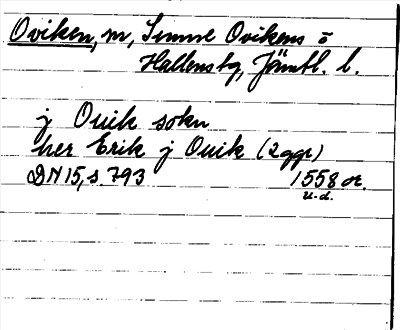 Oviken, m, Sunne Ovikens o
Hallens tg, Jämtl. l.
j Ouik sokn
her Erik j Ouik (2 ggr)
DN 15, s. 793 1558 or.
u.d.